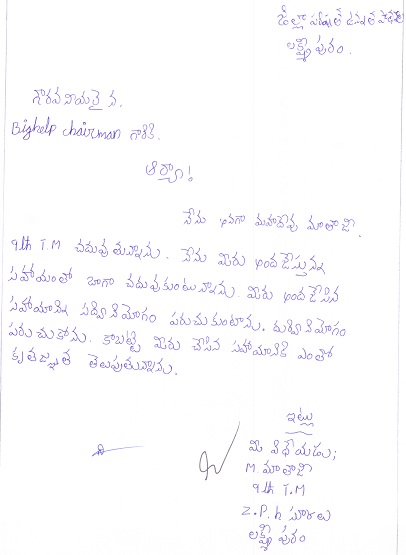 జిల్లా పరిషత్ ఉన్నత పాఠశాల
లక్ష్మీ పురం.
గౌరవనీయులైన.
Bighelp chairman గారికి.
ఆర్యా!
నేను మహాదేవు మాతాజి
9th T.M చదువుతున్నాను. నేను మీరు అందజేస్తున్న
సహాయంతో బాగా చదువుకుంటున్నాను. మీరు అందజేసిన
సహాయాన్ని సద్వినియోగం పరుచుకుంటాను. దుర్వినియోగం
పరుచుకోను. కాబట్టి మీరు చేసిన సహాయానికి ఎంతో
కృతజ్ఞత తెలుపుతున్నాను.
ఇట్లు
మీ విధేయుడు;
M. మాతాజి
9th T.M
Z.P.h స్కూలు
లక్ష్మీ పురం